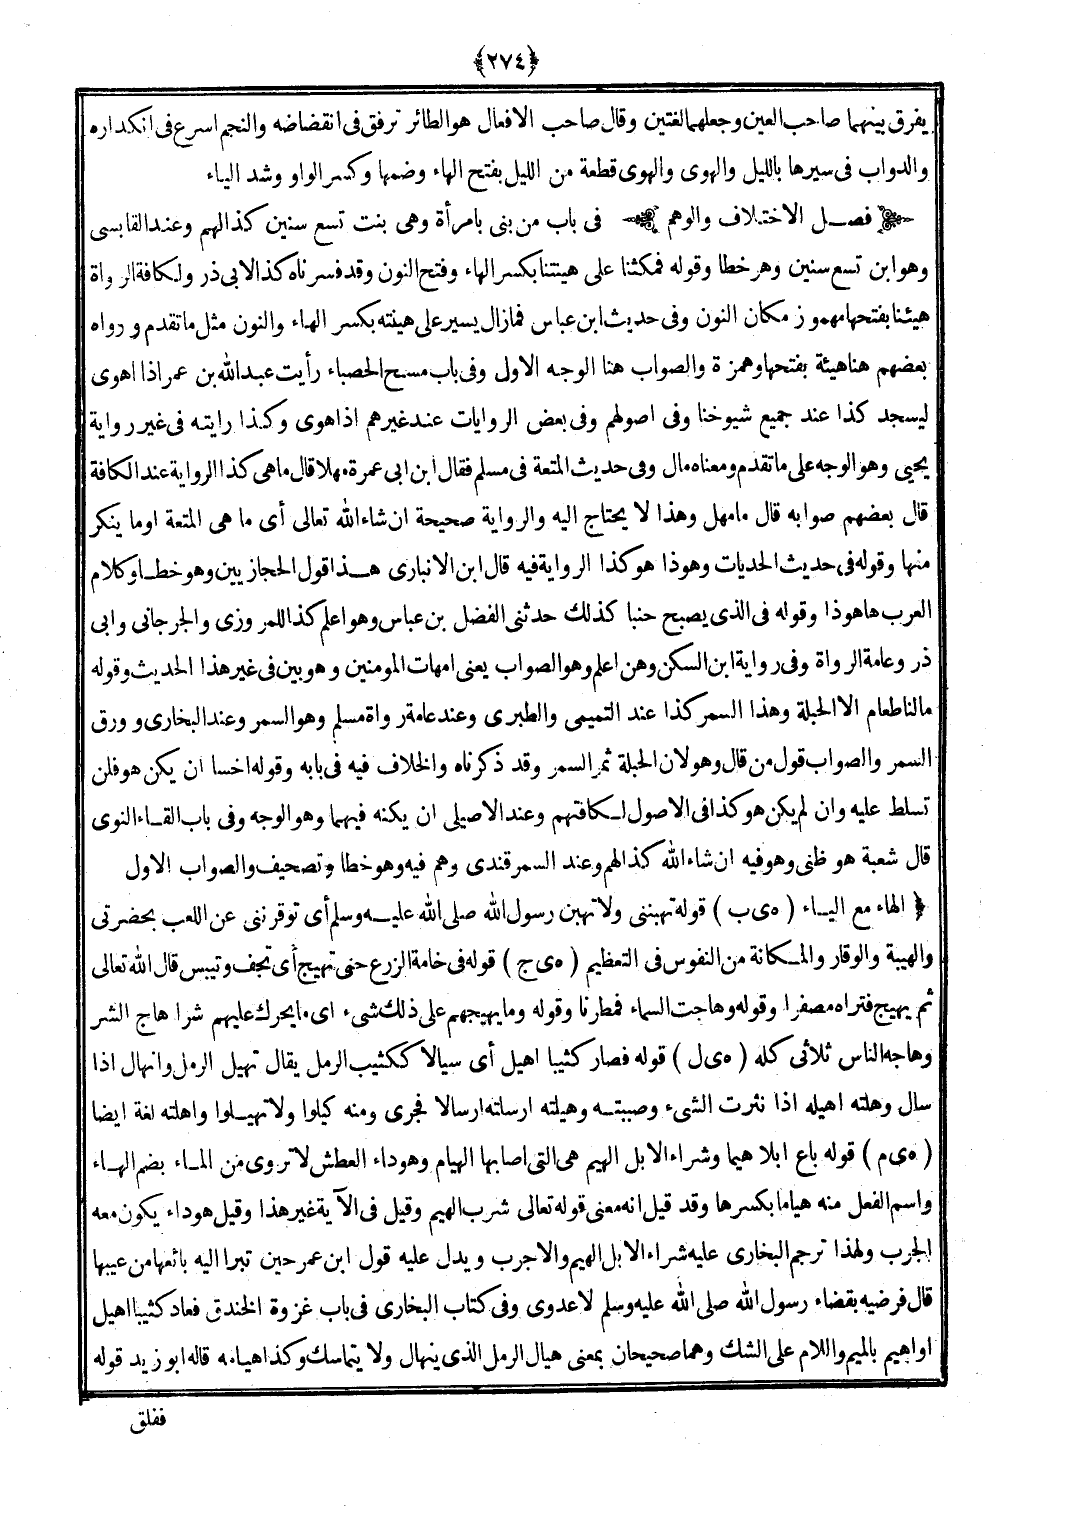 ﴿٢٧٤﴾
يفرق بينهما صاحب العين وجعلهما لغتين وقال صاحب الافعال هو الطائر ترفق فى انقضاضه والنجم اسرع فى انكداره
والدواب فى سيرها بالليل والهوى والهوى قطعة من الليل بفتح الهاء وضمها وكسر الواو وشد الياء
فصل الاختلاف والوهم فى باب من بنى بامرأة وهى بنت تسع سنين كذا لهم وعند القابسى
وهو ابن تسع سنين وهر خطا وقوله فمكثنا على هينتنا بكسر الهاء وفتح النون وقد فسرناه كذا لابى ذر ولكافة الرواة
هيئنا بفتحها مهموز مكان النون وفى حديث ابن عباس فمازال يسير على هينته بكسر الهاء والنون مثل ما تقدم ورواه
بعضهم هنا هيئة بفتحها وهمزة والصواب هنا الوجه الاول وفى باب مسح الحصباء رأيت عبد الله بن عمر اذا اهوى
ليسجد كذا عند جميع شيوخنا وفى اصولهم وفى بعض الروايات عند غيرهم اذا هوى وكذا رايته فى غير رواية
يحيى وهو الوجه على ما تقدم ومعناه مال وفى حديث المتعة فى مسلم فقال ابن ابى عمرة مهلا قال ما هى كذا الرواية عند الكافة
قال بعضهم صوابه قال مامهل وهذا لا يحتاج اليه والرواية صحيحة ان شاء الله تعالى أى ما هى المتعة اوما ينكر
منها وقوله فى حديث الحديات وهوذا هو كذا الرواية فيه قال ابن الانبارى هذا قول الحجازيين وهو خطا وكلام
العرب ها هوذا وقوله فى الذى يصبح حنبا كذلك حدثنى الفضل بن عباس وهو اعلم كذا للمروزى والجرجانى وابى
ذر وعامة الرواة وفى رواية ابن السكن وهن اعلم وهو الصواب يعنى امهات المومنين وهو بين فى غير هذا الحديث وقوله
مالنا طعام الا الحبلة وهذا السمر كذا عند التميمى والطبرى وعند عامة رواة مسلم وهو السمر وعند البخارى وورق
السمر والصواب قول من قال وهو لان الحبلة ثمر السمر وقد ذكرناه والخلاف فيه فى بابه وقوله اخسا ان يكن هو فلن
تسلط عليه وان لم يكن هو كذا فى الاصول لكافتهم وعند الاصيلى ان يكنه فيهما وهو الوجه وفى باب القاء النوى
قال شعبة هو ظنى وهو فيه ان شاء الله كذا لهم وعند السمرقندى وهم فيه وهو خطا وتصحيف والصواب الاول
﴿ الهاء مع الياء ( هى ب ) قوله تهبننى ولا تهبن رسول الله صلى الله عليه وسلم أى توقرننى عن اللعب بحضرتى
والهيبة والوقار والمكانة من النفوس فى التعظيم ( هى ج ) قوله فى خامة الزرع حتى تهيج أى تجف وتيبس قال الله تعالى
ثم يهيج فتراه مصفرا وقوله وهاجت السماء فمطرنا وقوله وما يهيجهم على ذلك شىء اى ما يحرك عليهم شرا هاج الشر
وهاجه الناس ثلاثى كله ( هى ل ) قوله فصار كثيبا اهيل أى سيالا ككثيب الرمل يقال تهيل الرمل وانهال اذا
سال وهلته اهيله اذا نثرت الشىء وصببته وهيلته ارسلته ارسالا فجرى ومنه كيلوا ولا تهيلوا واهلته لغة ايضا
( هى م ) قوله باع ابلا هيما وشراء الابل الهيم هى التى اصابها الهيام وهو داء العطش لا تروى من الماء بضم الهاء
واسم الفعل منه هياما بكسرها وقد قيل انه معنى قوله تعالى شرب الهيم وقيل فى الآية غير هذا وقيل هو داء يكون معه
الجرب ولهذا ترجم البخارى عليه شراء الابل الهيم والاجرب ويدل عليه قول ابن عمر حين تبرا اليه بائعها من عيبها
قال فرضيه بقضاء رسول الله صلى الله عليه وسلم لا عدوى وفى كتاب البخارى فى باب غزوة الخندق فعاد كثيبا اهيل
او اهيم بالميم واللام على الشك وهما صحيحان بمعنى هيال الرمل الذى ينهال ولا يتماسك وكذا هيامه قاله ابو زيد قوله
ففلق